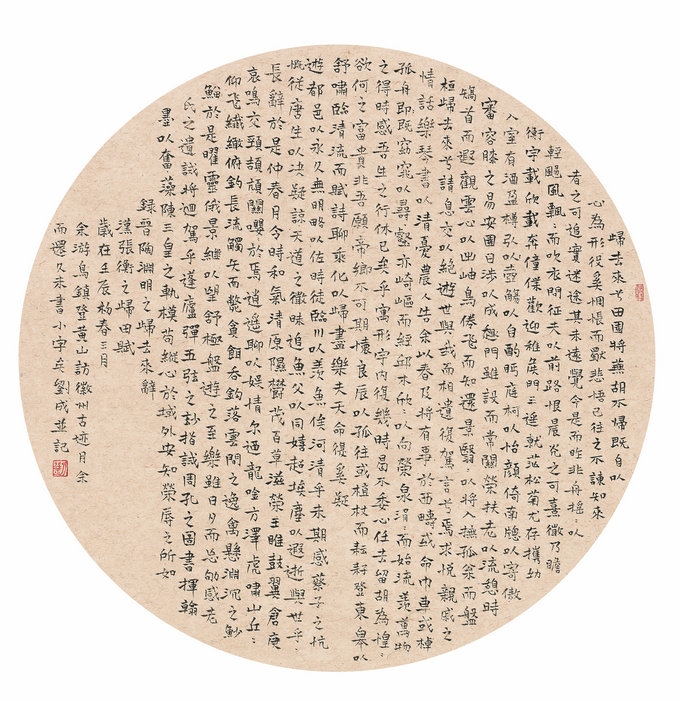 歸去來兮田園將蕪胡不歸既自以
心為形役奚惆悵而獨悲悟已往之不諫知來
者之可追實迷途其未遠覺今是而昨非舟搖〻以
輕颺風飄〻而吹衣問征夫以前路恨晨光之可熹微乃瞻
衡宇載欣載奔僮僕歡迎稚侯門三逕就荒松菊尤存攜幼
入室有酒盈樽引以壺觴以自酌眄庭柯以怡顏倚南牕以寄傲
審容膝之易安園日涉以成趣門雖設而常關策扶老以流憩時
矯首而遐觀雲心以出岫鳥倦飛而知還景翳以將入撫孤松而盤
桓歸去來兮請息交以絕遊世與我而相遺復駕言兮焉求悅親戚之
情話樂琴書以清憂農人告余以春及將有事於西疇或命巾車或棹
孤舟即既窈窕以尋壑亦崎嶇而經邱木欣〻以向榮泉涓〻而始流羨萬物
之得時感吾生之行休已矣乎寓形宇內復幾時曷不委心任去留胡為惶〻
欲何之富貴非吾願帝鄉不可期懷良辰以孤往或植杖而耘耔登東皋以
舒嘯臨清流而賦詩聊乘化以歸盡樂夫天命復奚疑
遊都邑以永久無明略以佐時徒臨川以羨魚俟河清乎未期感蔡子之忼
慨從唐生以決疑諒天道之微昧追漁父以同嬉超埃塵以遐逝與世乎
長辭於是仲春月令時和氣清原隰鬱茂百草滋榮王雎鼓翼倉庚
哀鳴交頸頡頏關嚶於焉逍遙聊以娛情尔迺龍吟方澤虎嘯山丘〻
仰飛纖繳俯釣長流觸矢而斃貪餌吞鉤落雲間之逸禽懸淵沉之魦
鰡於是曜靈俄景繼以望舒極盤遊之至樂雖日夕而忘劬感老
氏之遺誡將迴駕乎蓬廬彈五弦之妙指詠周孔之圖書揮翰
墨以奮藻陳三皇之軌模苟縱心於域外安知榮辱之所如
錄晉陶淵明之歸去來辭
漢張衡之歸田賦
歲在壬辰初春三月
余游烏鎮登黃山訪徽州古迹月余
而還久未書小字矣劉成並記